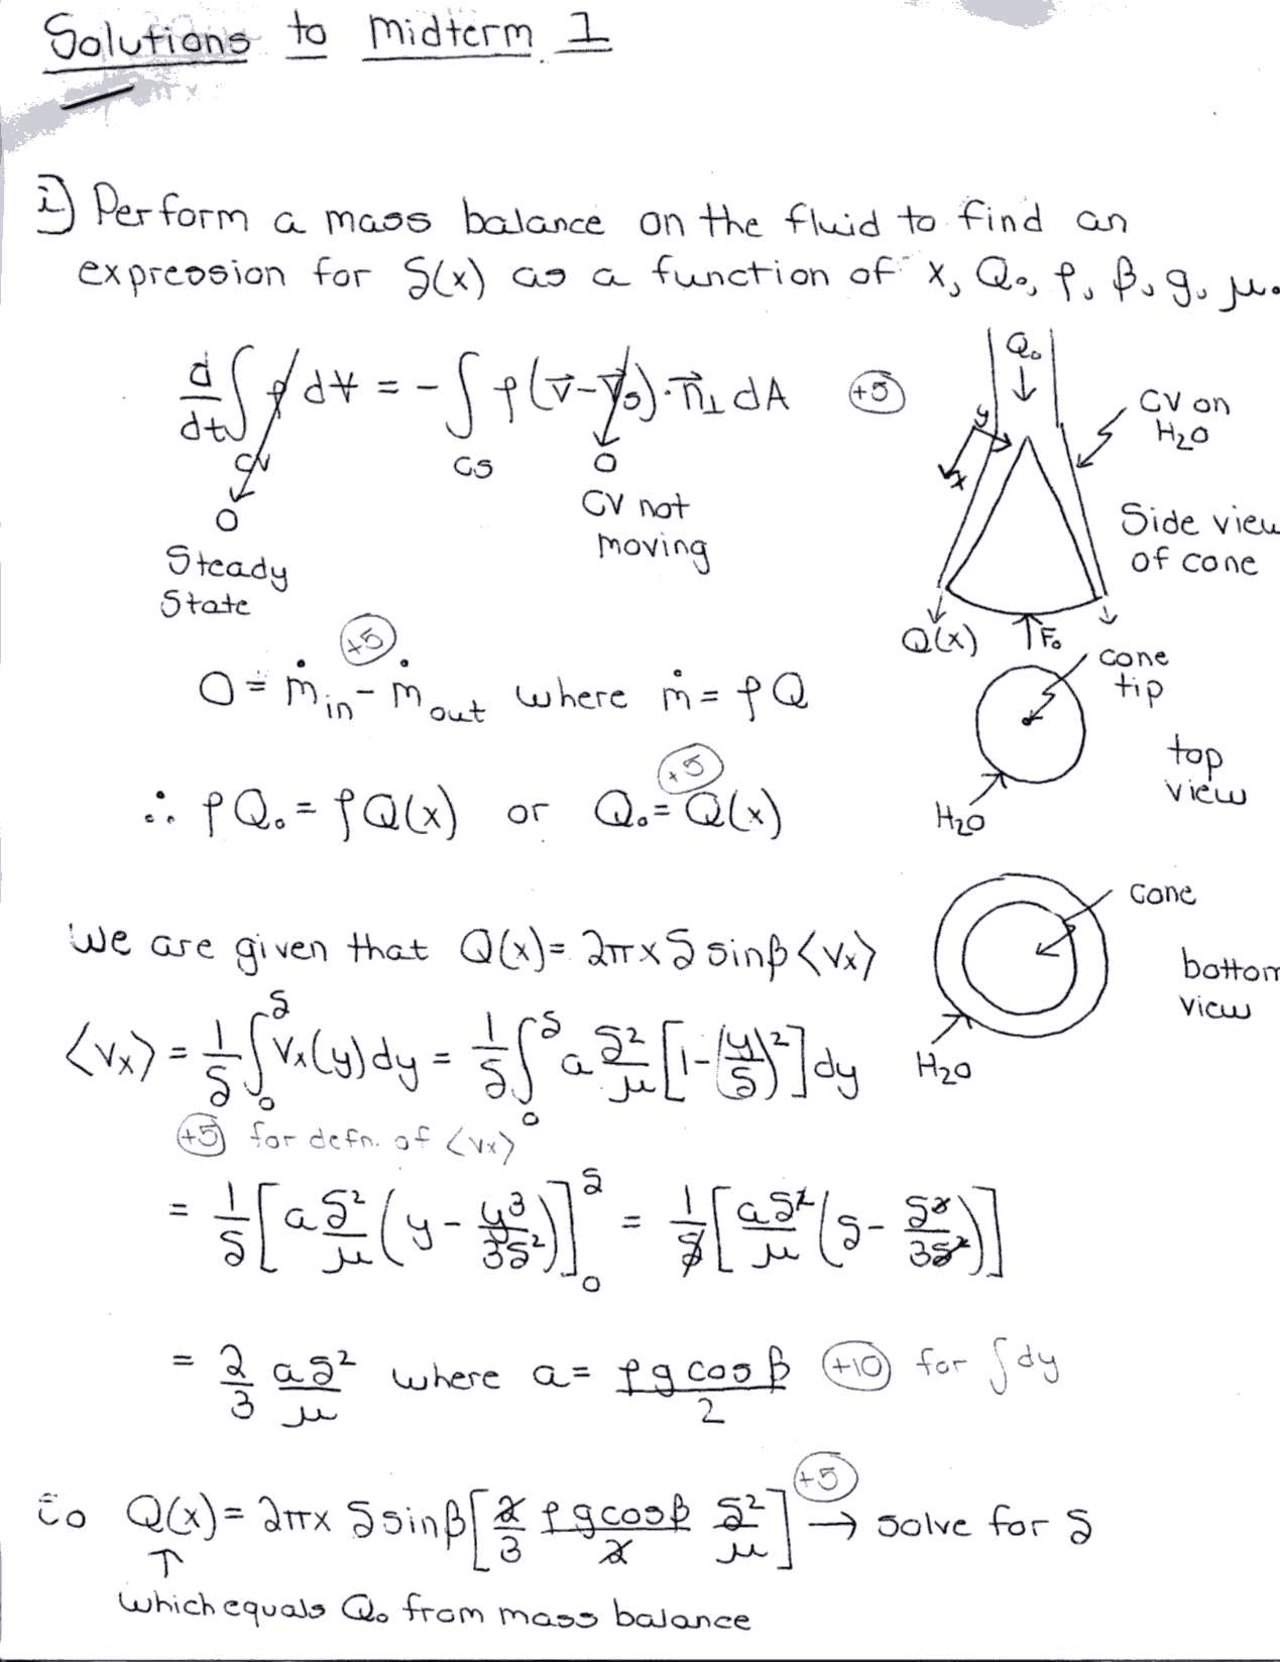 Solutions to Midterm 1
i) Perform a mass balance on the fluid to find an
expression for δ(x) as a function of x, Q₀, ρ, β, g, μ.
d/dt ∫_CV ρ dV = - ∫_CS ρ(v⃗-v⃗_s)·n⃗⊥ dA +5
0
Steady
State
0
CV not
moving
Q₀
y
x
CV on
H₂O
Side view
of cone
Q(x)
F₀
0 = ṁ_in - ṁ_out where ṁ = ρQ
+5
cone
tip
top
view
H₂O
∴ ρQ₀ = ρQ(x) or Q₀ = Q(x)
+5
cone
bottom
view
H₂O
We are given that Q(x) = 2πxδ sinβ⟨vx⟩
⟨vx⟩ = 1/δ ∫₀^δ vx(y)dy = 1/δ ∫₀^δ a δ²/μ [1-(y/δ)²]dy
+5 for defn. of ⟨vx⟩
= 1/δ [a δ²/μ (y - y³/3δ²)]₀^δ = 1/δ [aδ²/μ (δ - δ³/3δ²)]
= 2/3 aδ²/μ where a = ρg cosβ/2 +10 for ∫dy
so Q(x) = 2πx δ sinβ [2/3 ρg cosβ/2 δ²/μ] +5 → solve for δ
↑
which equals Q₀ from mass balance